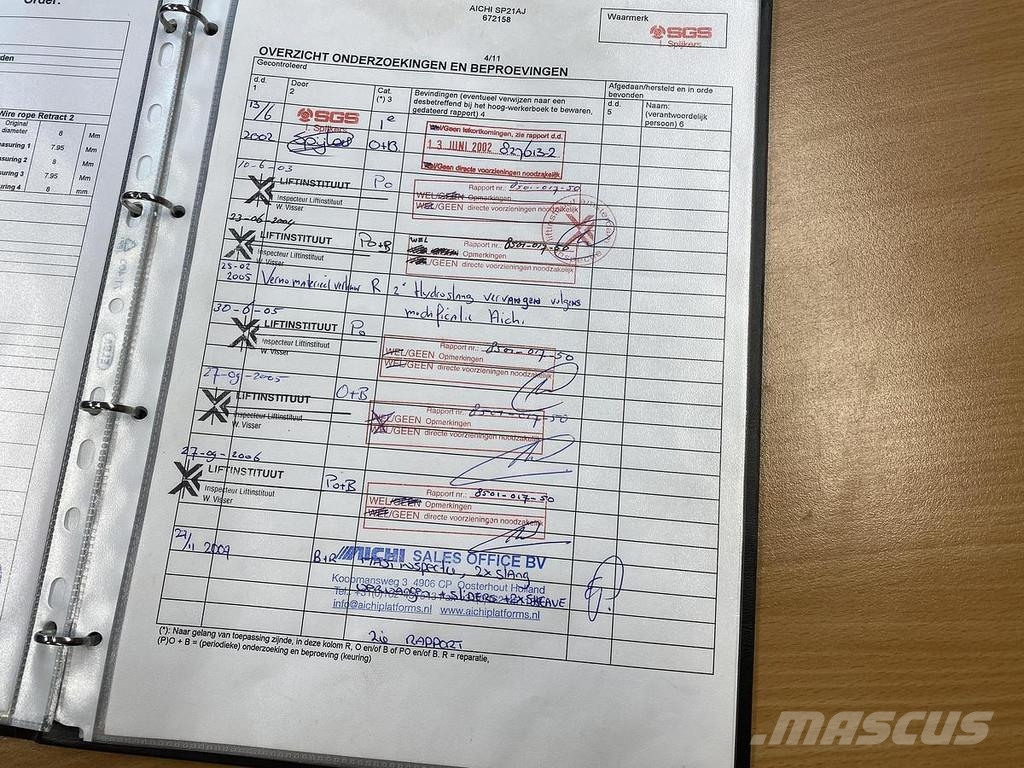 Order:
den
Wire rope Retract 2
Original diameter 8 Mm
asuring 1 7.95 Mm
suring 2 8 Mm
suring 3 7.95 Mm
uring 4 8 mm
AICHI SP21AJ
672158
Waarmerk
SGS
I. Spijkers
4/11
OVERZICHT ONDERZOEKINGEN EN BEPROEVINGEN
Gecontroleerd
Afgedaan/hersteld en in orde bevonden
d.d. 1
Door 2
Cat. (*) 3
Bevindingen (eventueel verwijzen naar een desbetreffend bij het hoog-werkerboek te bewaren, gedateerd rapport) 4
d.d. 5
Naam: (verantwoordelijk persoon) 6
13/6 2002
SGS
I. Spijkers
1e O+B
WEL/Geen tekortkomingen, zie rapport d.d.
13 JUNI 2002 827613-2
Wel/Geen directe voorzieningen noodzakelijk
10-6-03
LIFTINSTITUUT
Inspecteur Liftinstituut
W. Visser
Po
Rapport nr.: 8501-017-50
WEL/GEEN Opmerkingen
WEL/GEEN directe voorzieningen noodzakelijk
23-06-2004
LIFTINSTITUUT
Inspecteur Liftinstituut
W. Visser
Po+B
WEL
Rapport nr.: 8501-017-50
Opmerkingen
WEL/GEEN directe voorzieningen noodzakelijk
25-02 2005
R
2e Hydroslang vervangen volgens
modificatie Aichi.
30-6-05
LIFTINSTITUUT
Inspecteur Liftinstituut
W. Visser
Po
Rapport nr.: 8501-017-50
WEL/GEEN Opmerkingen
WEL/GEEN directe voorzieningen noodzakelijk
27-09-2005
LIFTINSTITUUT
Inspecteur Liftinstituut
W. Visser
O+B
Rapport nr.: 8501-017-50
WEL/GEEN Opmerkingen
WEL/GEEN directe voorzieningen noodzakelijk
27-09-2006
LIFTINSTITUUT
Inspecteur Liftinstituut
W. Visser
Po+B
Rapport nr.: 8501-017-50
WEL/GEEN Opmerkingen
WEL/GEEN directe voorzieningen noodzakelijk
27/11 2009
B+R
AICHI SALES OFFICE BV
inspectie, 2x slang
Koopmansweg 3 4906 CP Oosterhout Holland
+ SLIDERS + 2x SHEAVE
info@aichiplatforms.nl www.aichiplatforms.nl
zie RAPPORT
(*): Naar gelang van toepassing zijnde, in deze kolom R, O en/of B of PO en/of B. R = reparatie,
(P)O + B = (periodieke) onderzoeking en beproeving (keuring)
MASCUS